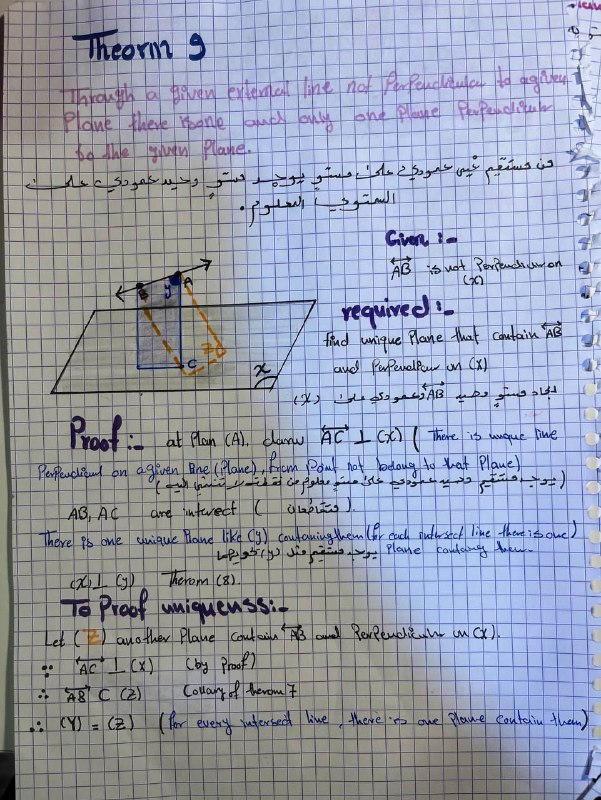 Theorm 9
Through a given external line not Perpendicular to a given
Plane there is one and only one Plane Perpendiculr
to the given Plane.
من مستقيم غير عمودي على مستو يوجد مستو وحيد عمودي على
المستوي المعلوم .
Given :-
AB is not Perpendicur on
(x)
required :-
find unique Plane that contain AB
and Perpendicur on (X)
ايجاد مستو وحيد AB وعمودي على (X)
B
A
y
Z
C
x
Proof :- at Plan (A). draw AC ⊥ (x) ( There is unque line
Perpendicul on a given line (Plane), from Point not belong to that Plane)
(يوجد مستقيم وحيد عمودي على مستو معلوم من نقطة لا تنتمي اليه)
AB, AC are intersect ( متقاطعان ).
There is one unique Plane like (y) containg them (for each intersect line there is one)
يوجد مستقيم مثل (y) يحويهما Plane containg them.
(x) ⊥ (y) Therom (8).
To Proof uniquenss :-
Let (Z) another Plane contain AB and Perpendiculr on (X).
∵ AC ⊥ (X) (by Proof)
∴ AB C (Z) Collary of therom 7
∴ (Y) = (Z) (for every intersect line, there is one Plane contain them)